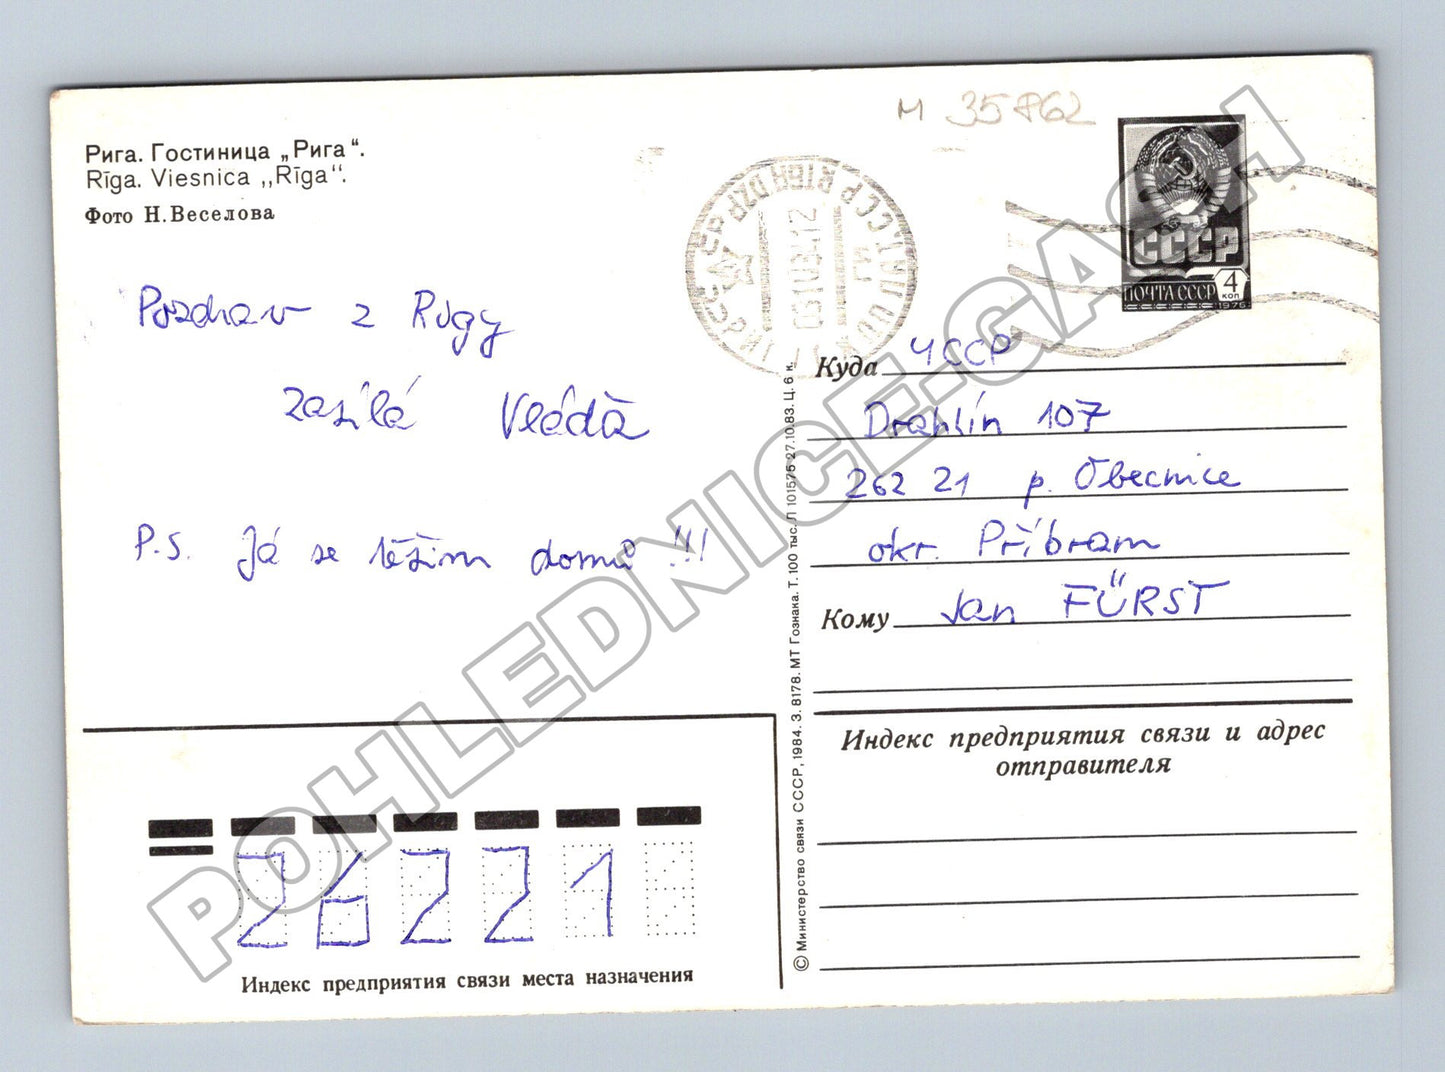 М 35862
Рига. Гостиница „Рига“.
Rīga. Viesnica ,,Rīga''.
Фото Н. Веселова
Pozdrav z Rigy
zasílá Vláďa
P.S. Já se těším domů !!!
СССР
ПОЧТА СССР 4 КОП
1976
Куда ЧССР
Drahlín 107
262 21 p. Obecnice
okr. Příbram
Кому Jan FÜRST
Индекс предприятия связи и адрес
отправителя
© Министерство связи СССР, 1984. З. 8178. МТ Гознака. Т. 100 тыс. Л 101575 27.10.83. Ц. 6 к.
26221
Индекс предприятия связи места назначения
POHLEDNICE-GASH